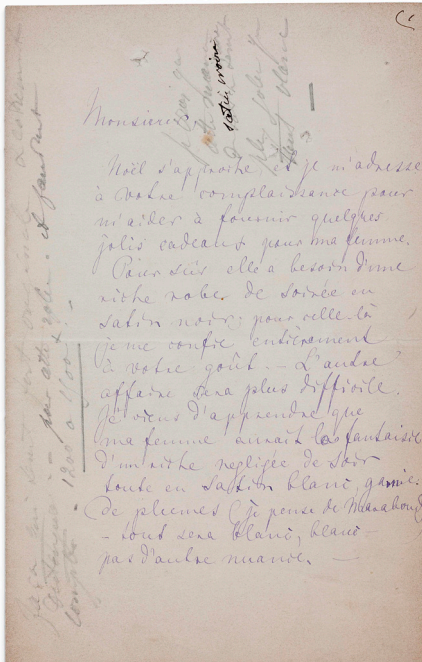 Monsieur
Noël s'approche, je m'adresse
à votre complaissance pour
m'aider à fournir quelques
jolis cadeaux pour ma femme.
Pour sûr elle a besoin d'une
riche robe de soirée en
satin noir; pour celle-là
je me confie entièrement
à votre goût. — L'autre
affaire sera plus difficile.
Je viens d'apprendre que
ma femme aurait la fantaisie
d'un riche negligée de soir
toute en satin blanc, garnie
de plumes (je pense de Marabout)
– tout sera blanc, blanc –
pas d'autre nuance. —
satin noir
blanc
pour cette robe. il faudrait
compter – 1200 a 1400 f. –